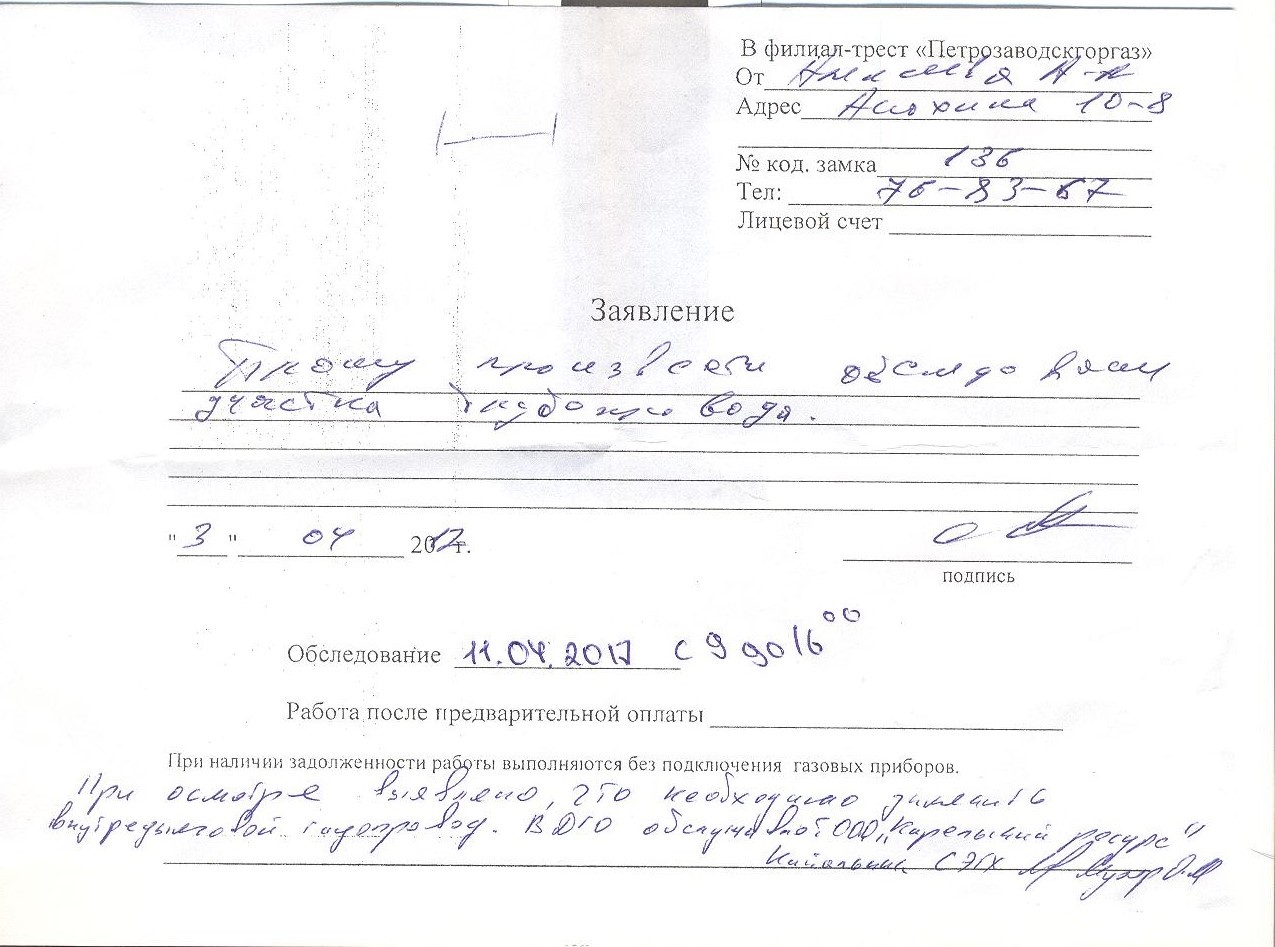 В филиал-трест «Петрозаводскгоргаз»
От
Адрес Анохина 10-8
№ код. замка 136
Тел: 76-83-67
Лицевой счет
Заявление
Прошу произвести
участка газопровода.
"3" 04 2017г.
подпись
Обследование 11.04.2017 с 9 до 16 00
Работа после предварительной оплаты
При наличии задолженности работы выполняются без подключения газовых приборов.
При осмотре выявлено, что необходимо заменить
внутридомовой газопровод. ВДГО обслуживает ООО „Карельский ресурс"
Начальник СЭГХ